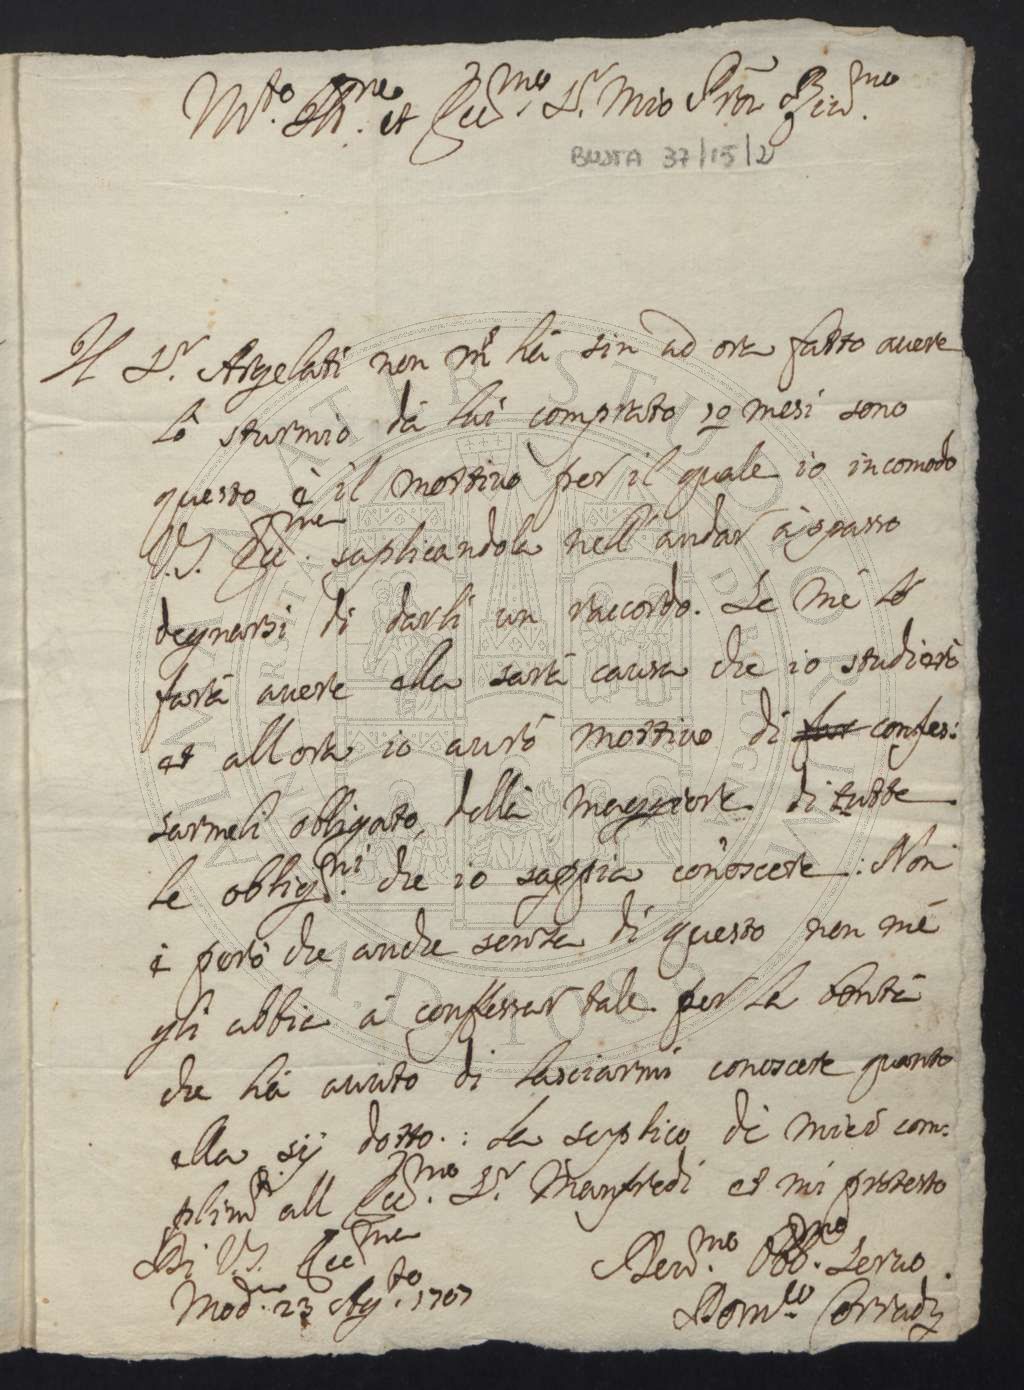 M.to Ill.re et Ecc.mo S.r Mio Pron Rev.mo
BUSTA 37/15/2
Il S.r Argelati non m'hà sin ad ora fatto avere
lò sturmio dà lui comprato 10 mesi sono
questo è il mottivo per il quale io incomodo
V.S. Ecc.ma suplicandola nell'andar à spasso
degnarsi di darli un raccordo. Se mè lò
farà avere ella sarà causa che io studierò
et allora io avrò mottivo di far confes:
sarmeli obbligato, della maggiore di tutte
le oblig.ni che io sappia conoscere: Non
è però che anche senza di questo non mè
gli abbia à confessar tale per la bontà
che hà avuto di lasciarmi conoscere quanto
ella sij dotto.: La suplico de miei com:
plim.ti all Ecc.mo S.r Manfredi et mi protesto
Di V.S. Ecc.ma
Mod.a 23 Ag.to 1707
Dev.mo Obb.mo Servo
Dom.co Corradi
ALMA MATER STUDIORUM
A.D. 1088